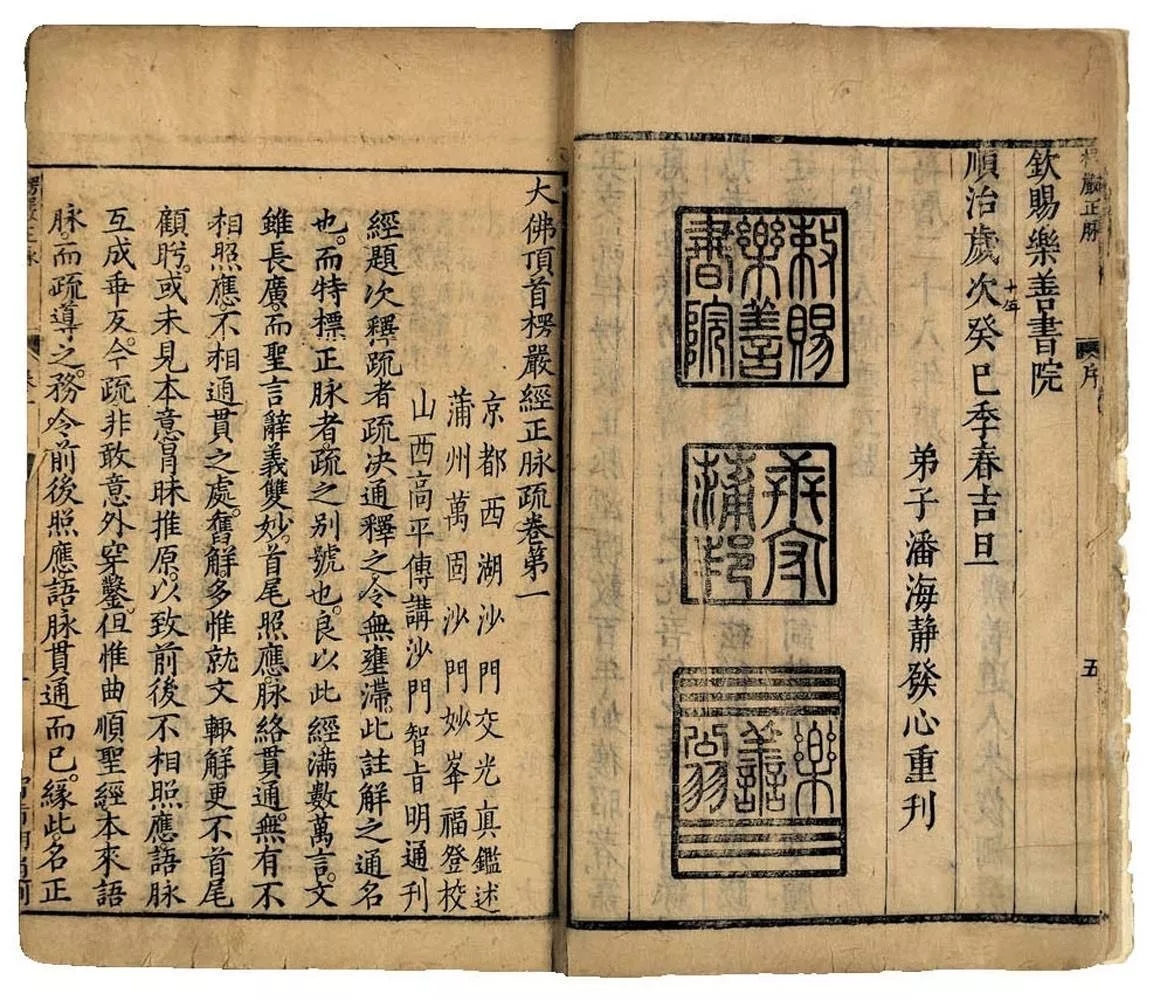 楞嚴正脉
序
五
欽賜樂善書院
順治歲次癸巳季春吉旦
十年
弟子潘海靜發心重刊
敕賜
樂善
書院
蒲邦
樂
善
翁
大佛頂首楞嚴經正脉疏卷第一
京都西湖沙門交光真鑑述
蒲州萬固沙門妙峯福登校
山西高平傳講沙門智旨明通刊
經題次釋疏者疏决通釋之令無壅滯。此註解之通名
也。而特標正脉者。疏之别號也。良以此經滿數萬言。文
雖長廣。而聖言辭義雙妙。首尾照應。脉絡貫通。無有不
相照應不相通貫之處。舊解多惟就文輙解更不首尾
顧眄。或未見本意冐昧推原。以致前後不相照應語脉
互成乖反。今疏非敢意外穿鑿。但惟曲順聖經本來語
脉。而疏導之。務令前後照應語脉貫通而已。緣此名正